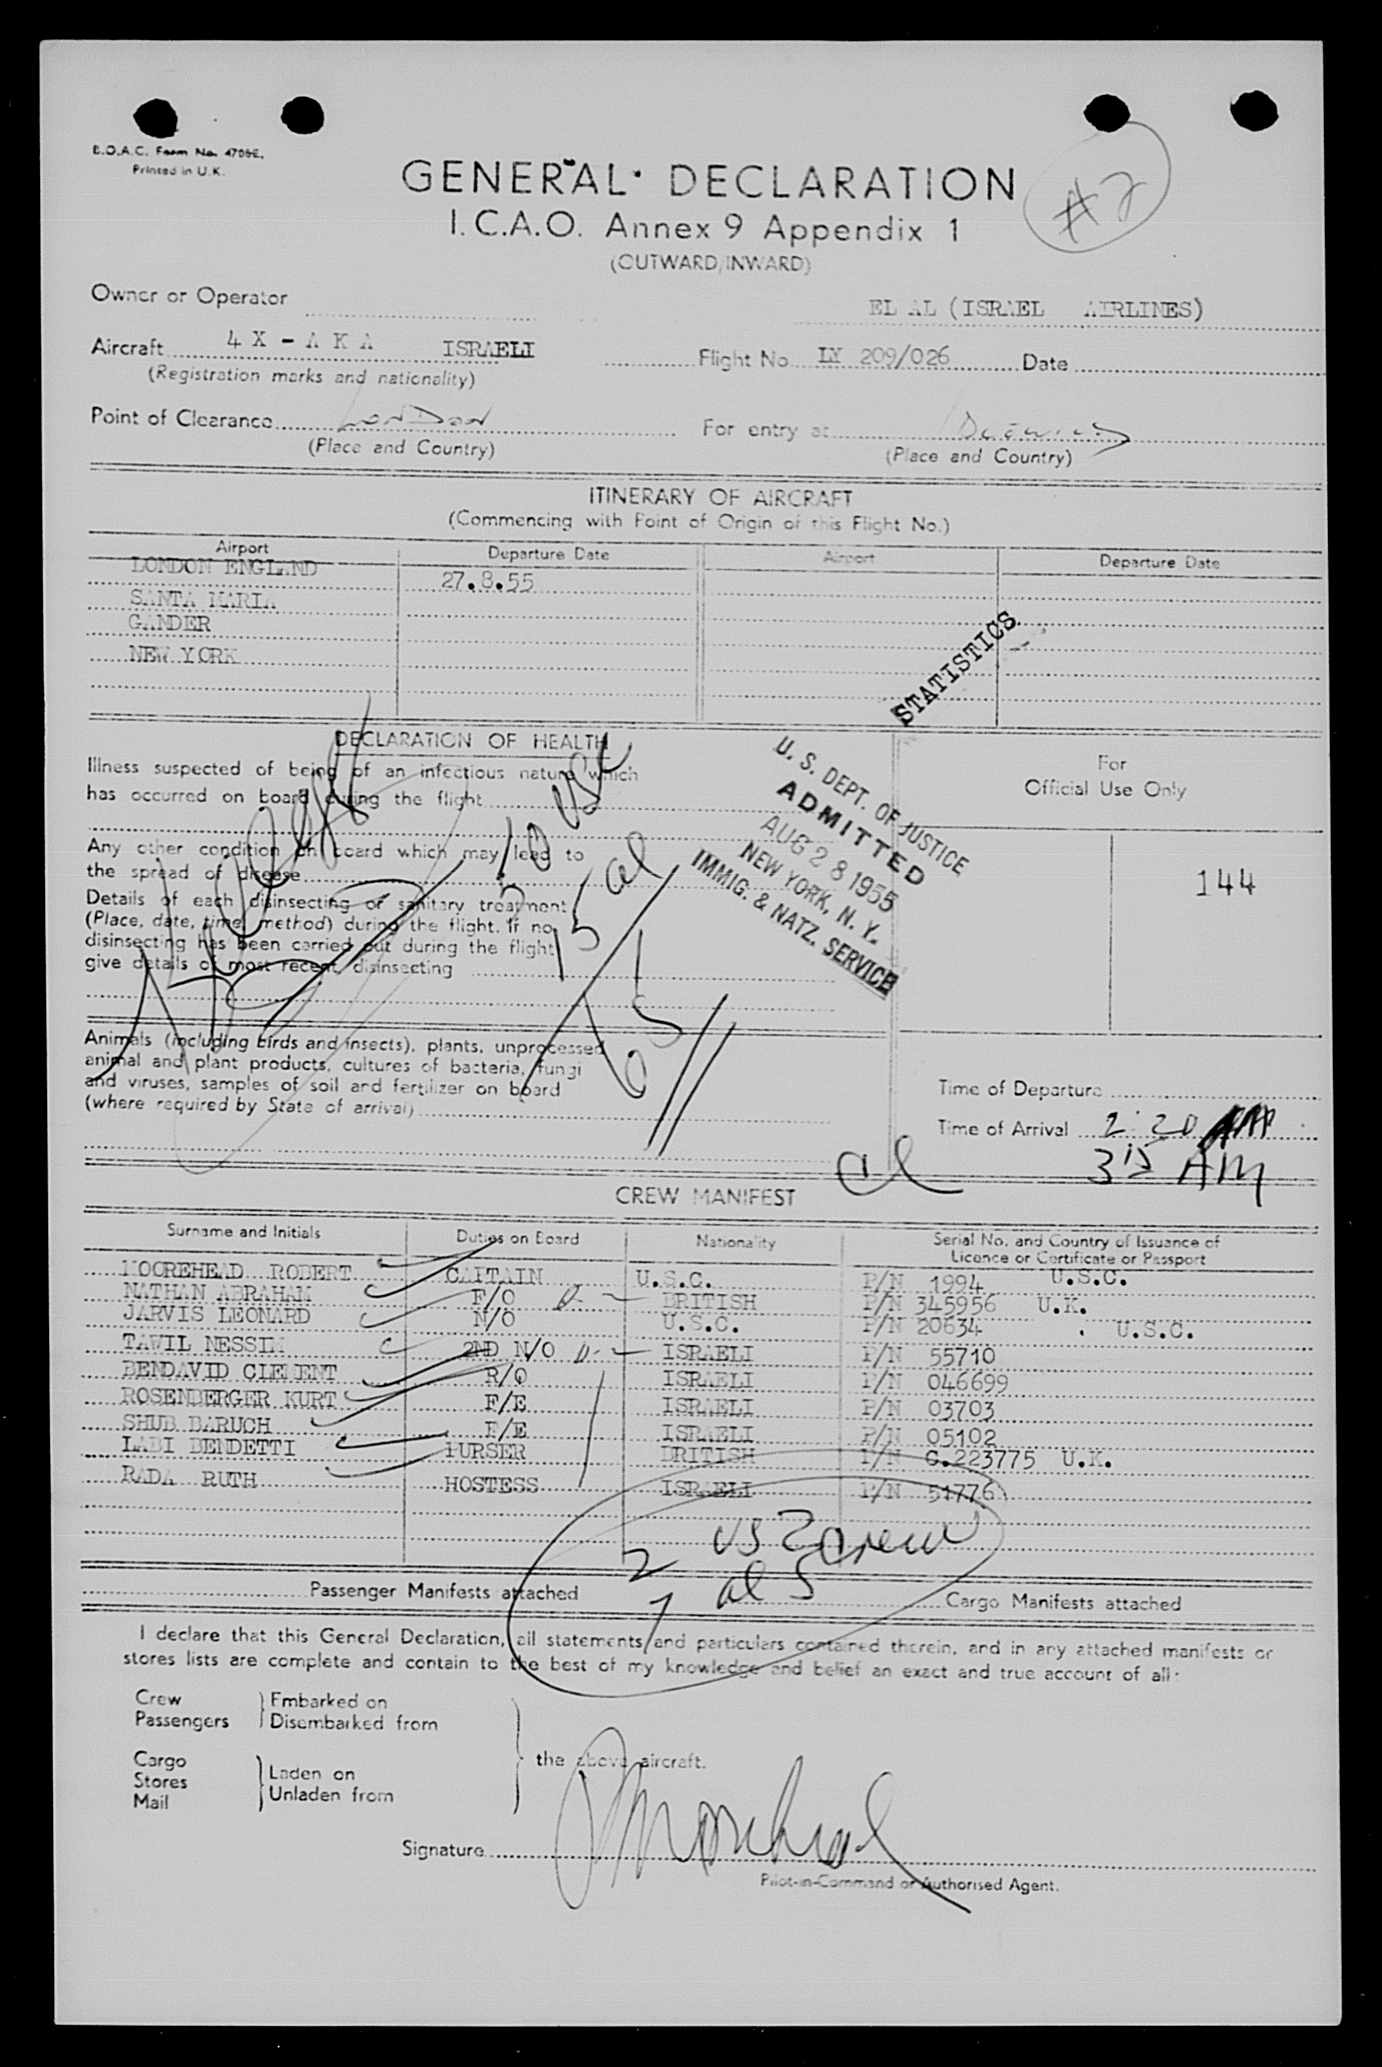 B.O.A.C. Form No. 4706E.
Printed in U.K.
GENERAL DECLARATION
#2
I.C.A.O. Annex 9 Appendix 1
(OUTWARD/INWARD)
Owner or Operator EL AL (ISRAEL AIRLINES)
Aircraft 4 X - A K A ISRAELI Flight No. LY 209/026 Date
(Registration marks and nationality)
Point of Clearance LONDON For entry at
(Place and Country) (Place and Country)
ITINERARY OF AIRCRAFT
(Commencing with Point of Origin of this Flight No.)
Airport Departure Date Airport Departure Date
LONDON ENGLAND 27.8.55
SANTA MARIA
GANDER
NEW YORK
STATISTICS
DECLARATION OF HEALTH
Illness suspected of being of an infectious nature which
has occurred on board during the flight
Any other condition on board which may lead to
the spread of disease
Details of each disinsecting or sanitary treatment
(Place, date, time, method) during the flight. If no
disinsecting has been carried out during the flight
give details of most recent disinsecting
10 USC
15 al
U. S. DEPT. OF JUSTICE
ADMITTED
AUG 28 1955
NEW YORK, N. Y.
IMMIG. & NATZ. SERVICE
For
Official Use Only
144
Animals (including birds and insects), plants, unprocessed
animal and plant products, cultures of bacteria, fungi
and viruses, samples of soil and fertilizer on board
(where required by State of arrival)
Time of Departure
Time of Arrival 2:20 AM
3 15 AM
CREW MANIFEST
Surname and Initials Duties on Board Nationality Serial No. and Country of Issuance of
Licence or Certificate or Passport
MOOREHEAD ROBERT CAPTAIN U.S.C. P/N 1994 U.S.C.
NATHAN ABRAHAM F/O BRITISH P/N 345956 U.K.
JARVIS LEONARD N/O U.S.C. P/N 20634 U.S.C.
TAWIL NESSIM 2ND N/O ISRAELI P/N 55710
BENDAVID CLEMENT R/O ISRAELI P/N 046699
ROSENBERGER KURT F/E ISRAELI P/N 03703
SHUB BARUCH F/E ISRAELI P/N 05102
LABI BENDETTI PURSER BRITISH P/N C.223775 U.K.
RADA RUTH HOSTESS ISRAELI P/N 51776
US 2 crew
2 al 5
7
Passenger Manifests attached Cargo Manifests attached
I declare that this General Declaration, all statements and particulars contained therein, and in any attached manifests or
stores lists are complete and contain to the best of my knowledge and belief an exact and true account of all:
Crew Embarked on
Passengers Disembarked from
the above aircraft.
Cargo
Stores Laden on
Mail Unladen from
Signature
Pilot-in-Command or Authorised Agent.